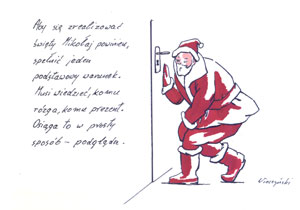 Aby się zrealizować
święty Mikołaj powinien,
spełnić jeden
podstawowy warunek.
Musi wiedzieć, komu
rózga, komu prezent.
Osiąga to w prosty
sposób – podgląda.